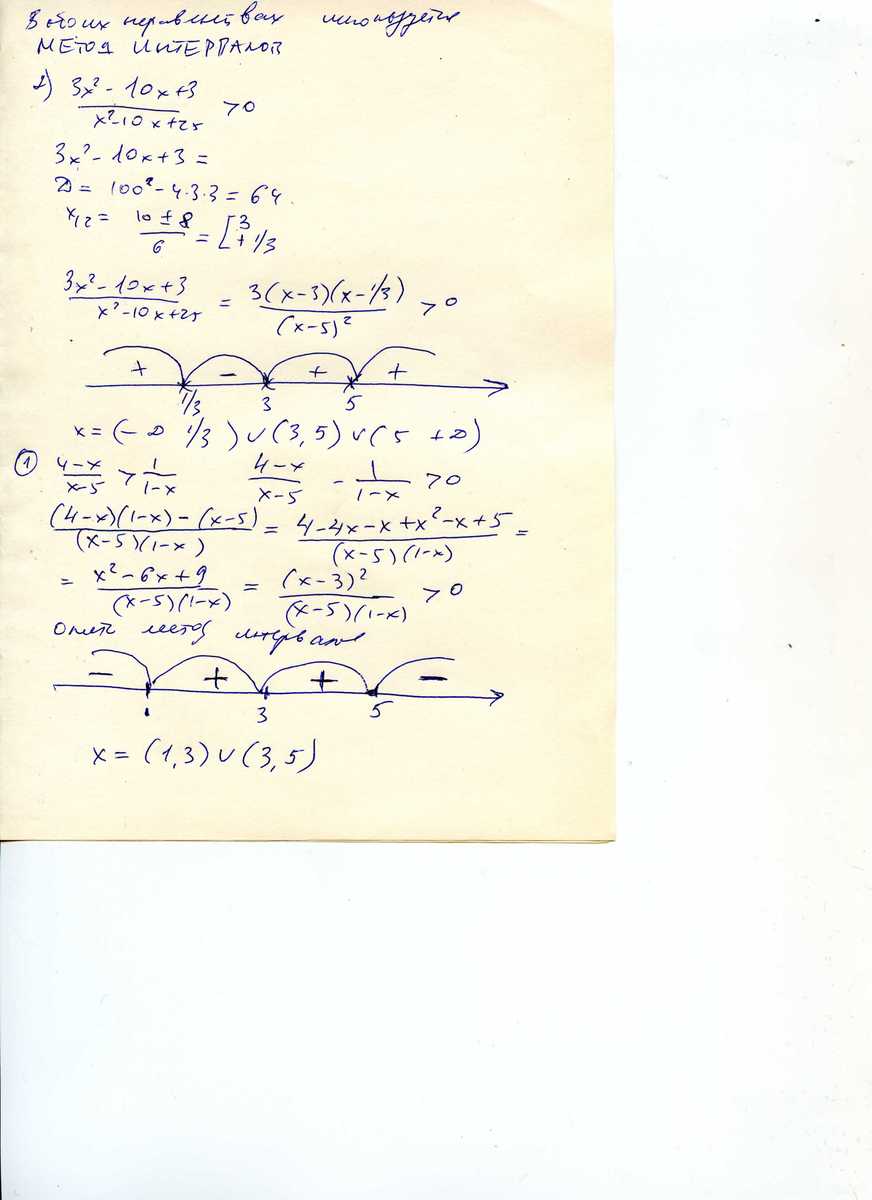 В обоих неравенствах используется
МЕТОД ИНТЕРВАЛОВ
2) (3x² - 10x + 3)/(x² - 10x + 25) > 0
3x² - 10x + 3 =
D = 100² - 4·3·3 = 64.
x₁₂ = (10 ± 8)/6 = [3 + 1/3
(3x² - 10x + 3)/(x² - 10x + 25) = 3(x-3)(x-1/3)/(x-5)² > 0
+ - + +
1/3 3 5
x = (-∞ 1/3) ∪ (3, 5) ∪ (5 +∞)
① (4-x)/(x-5) > 1/(1-x) (4-x)/(x-5) - 1/(1-x) > 0
((4-x)(1-x) - (x-5))/((x-5)(1-x)) = (4 - 4x - x + x² - x + 5)/((x-5)(1-x)) =
= (x² - 6x + 9)/((x-5)(1-x)) = (x-3)²/((x-5)(1-x)) > 0
Опять метод интервалов
- + + -
1 3 5
x = (1, 3) ∪ (3, 5)